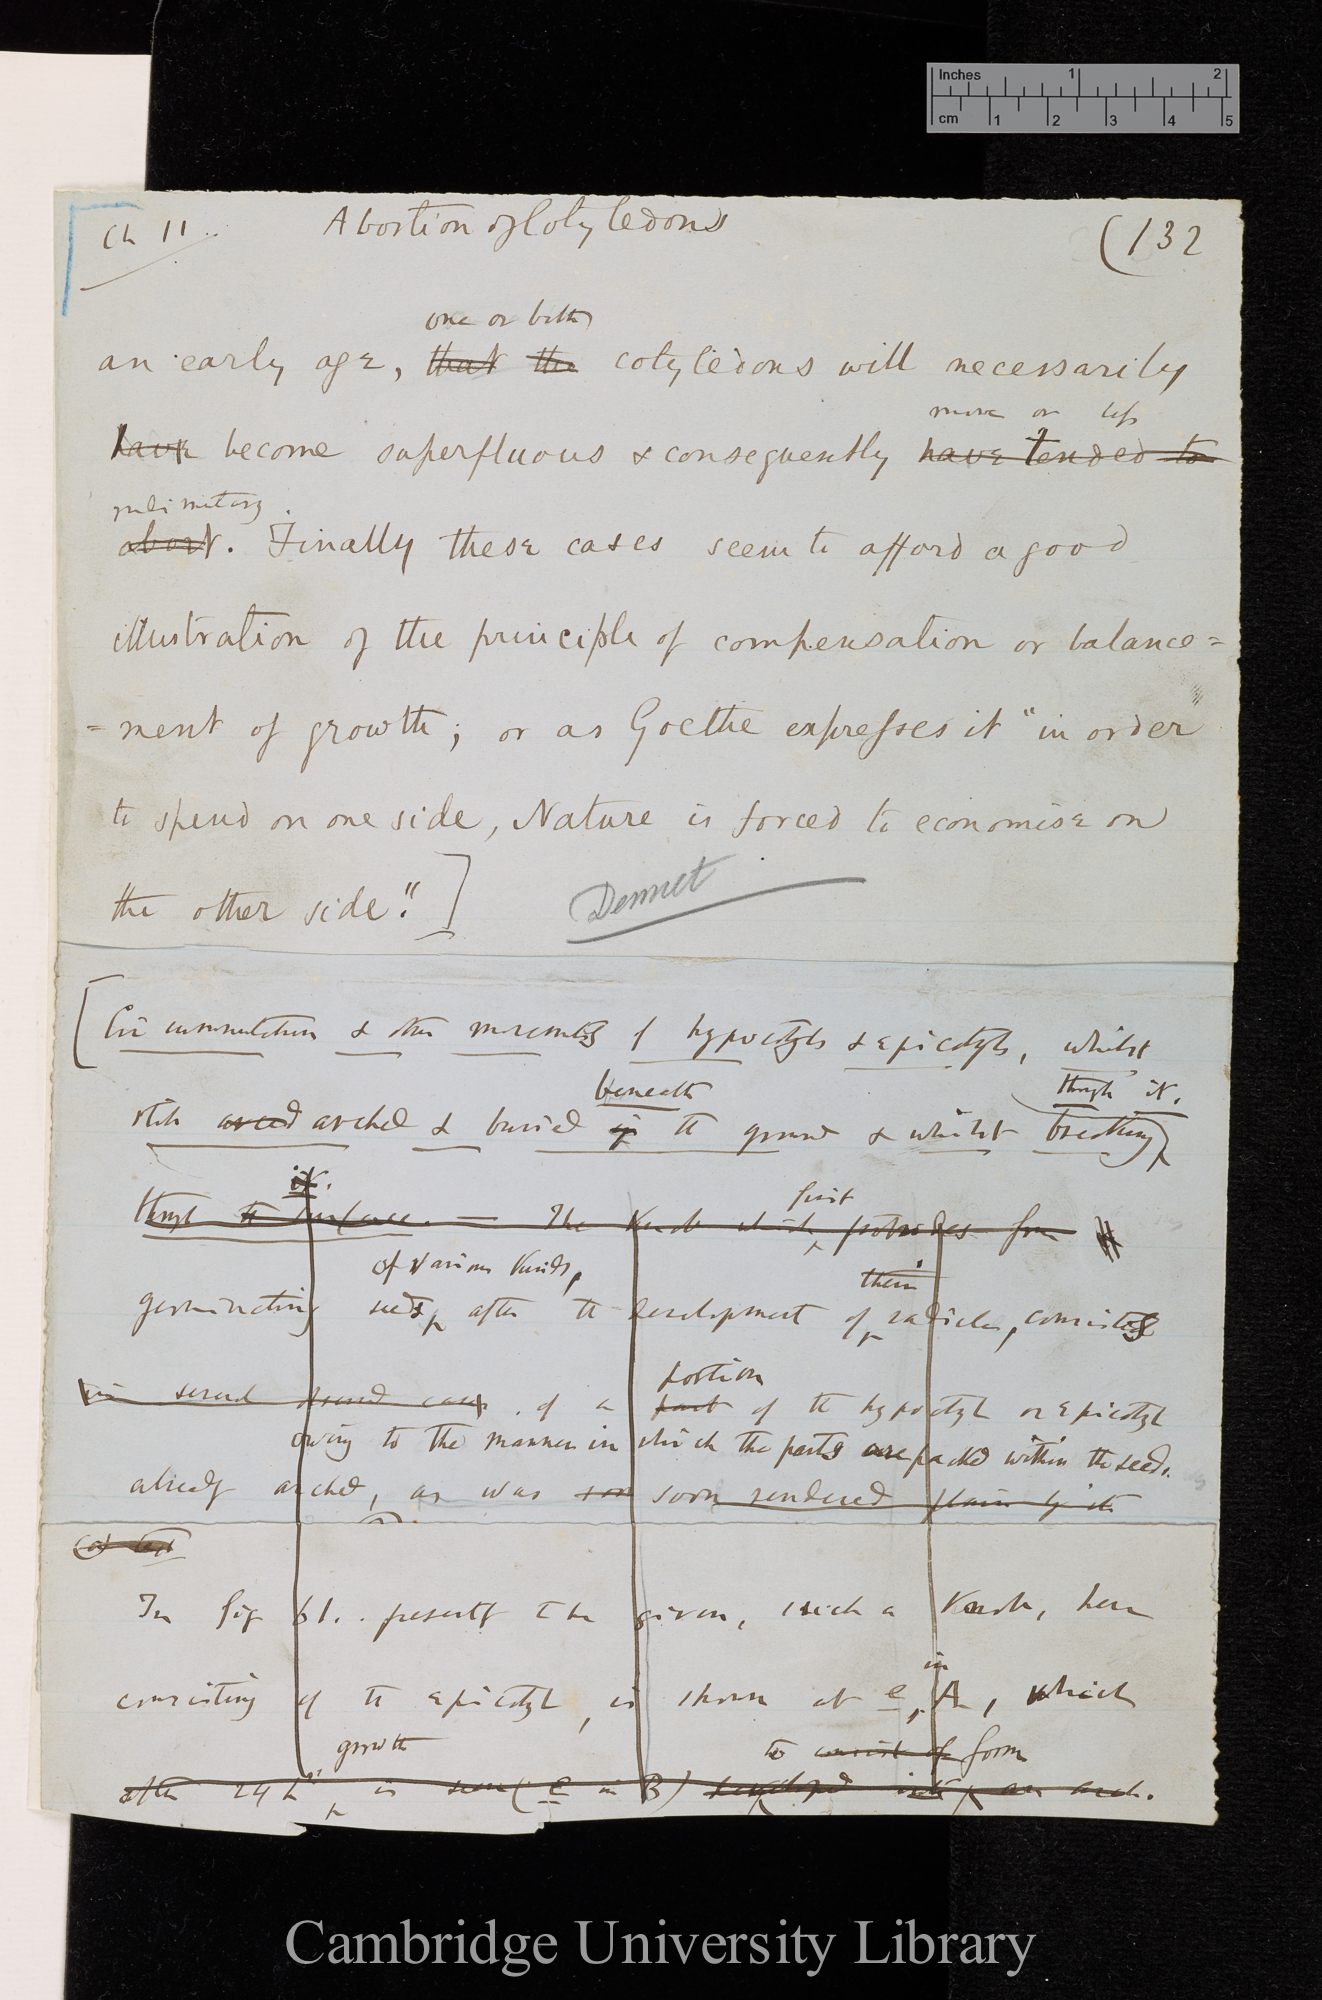 Inches 1 2
cm 1 2 3 4 5
Ch 11. Abortion of Cotyledons (132
one or both
an early age, that the cotyledons will necessarily
more or less
have become superfluous & consequently have tended to
rudimentary.
abort. Finally these cases seem to afford a good
illustration of the principle of compensation or balance=
=ment of growth; or as Goethe expresses it "in order
to spend on one side, Nature is forced to economise on
the other side." ]
[Circumnutation & other movements of hypocotyls & epicotyls, whilst
beneath through it.
still arched & buried in the ground & whilst breaking
it.
first
through the surface. — The knob which protrudes from
of various kinds,
their
germinating seeds after the development of radicles, consists
portion
in several cases of a part of the hypocotyl or epicotyl
owing to the manner in which the parts are packed within the seeds.
already arched, as was soon rendered plain by its
In fig 61. presently to be given, such a knob, here
in
consisting of the epicotyl, is shown at e, A, which
growth to consist of form
after 24 h is seen (e in B) developed into an arch.
Cambridge University Library